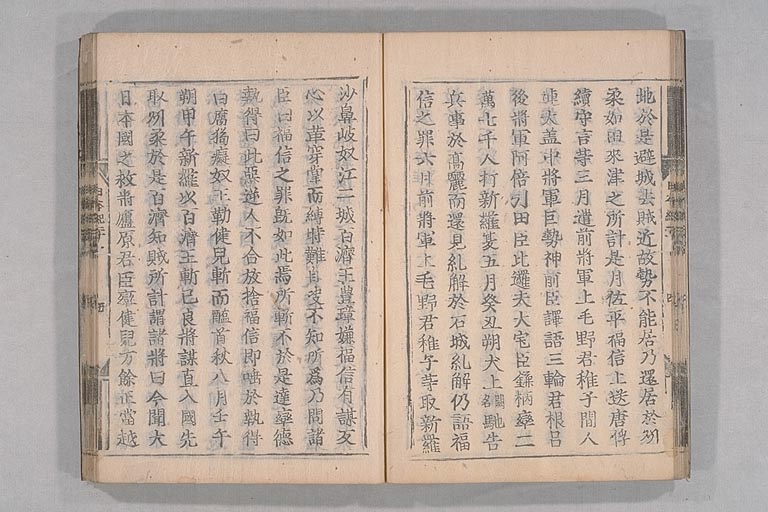 地於是避城去賊近故勢不能居乃還居於州
柔如田來津之所計是月佐平福信上送唐俘
續守言等三月遣前將軍上毛野君稚子間人
連大盖中將軍巨勢神前臣譯語三輪君根呂
後將軍阿倍引田臣比邏夫大宅臣鎌柄率二
萬七千人打新羅夏五月癸丑朔犬上君闕名馳告
兵事於高麗而還見糺解於石城糺解仍語福
信之罪六月前將軍上毛野君稚子等取新羅
沙鼻岐奴江二城百濟王豐璋嫌福信有謀反
心以革穿掌而縛時難自決不知所爲乃問諸
臣曰福信之罪旣如此焉所斬不於是達率德
執得曰此惡逆人不合放捨福信即唾於執得
曰腐狗癡奴王勒健兒斬而醢首秋八月壬午
朔甲午新羅以百濟王斬已良將謀直入國先
取州柔於是百濟知賊所計謂諸將曰今聞大
日本國之救將廬原君臣率健兒万餘正當越